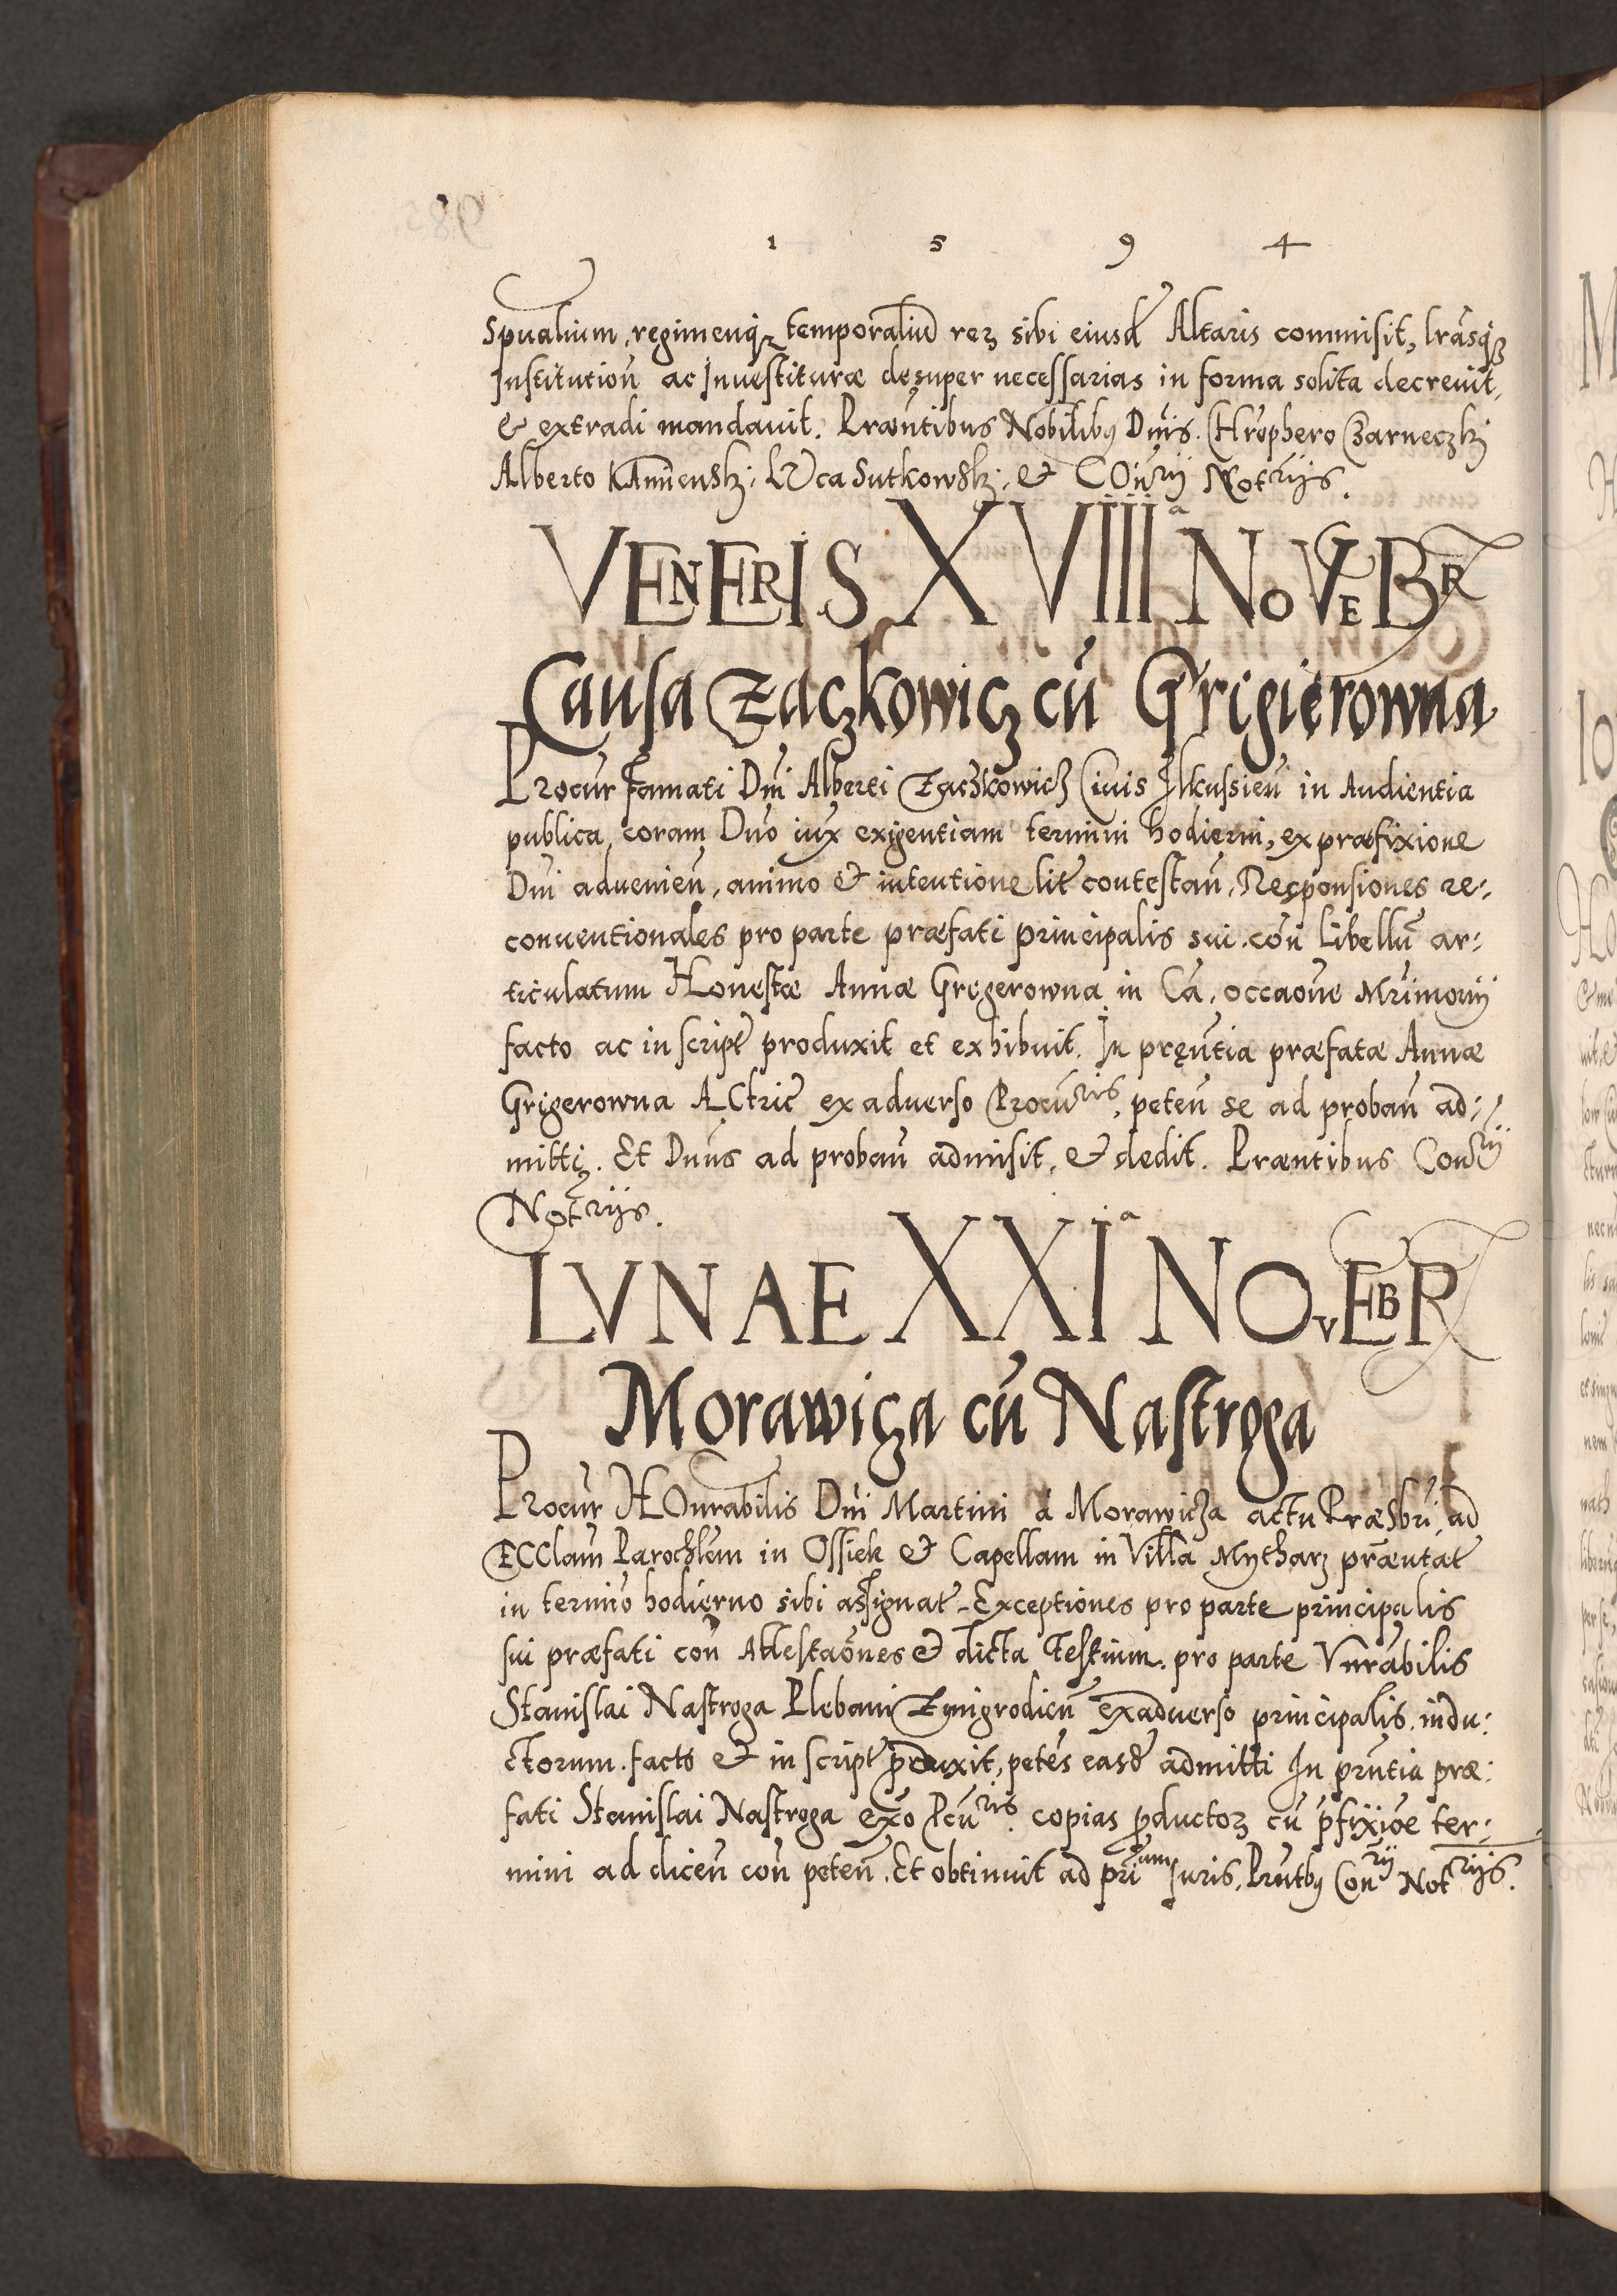 1 5 9 4
Spualium, regimenq₃ temporaliū reꝝ sibi eiusd̄ Altaris commisit, lrāsq₃
Institution̄ ac Inuestituræ desuper necessarias in forma solita decreuit,
& extradi mandauit. Præntibus Nobilibꝰ Dn̄is. Chrophero Czarneczkj
Alberto KAmienskj, LVca Sutkowskj, & COn̄rij Notrijs.
VENERIS XVIIIa NOVEBR
Causa Zaczkowicz cū Grigierowna
Procur Famati Dn̄i Alberti Zaczkowicz Ciuis Ilkussien̄ in Audientia
publica, coram Dn̄o iux exigentiam termini hodierni, ex præfixione
Dn̄i aduenien̄, animo & intentione lit̄ contestan̄, Responsiones re:
conuentionales pro parte præfati principalis sui con̄ Libellū ar:
ticulatum Honestæ Annæ Gregerowna in Cā, occaōne Mr̄imonij
facto ac in script̄ produxit et exhibuit. In pręn̄tia præfatæ Annæ
Grigerowna ACtric̄ ex aduerso Procuris, peten̄ se ad proban̄ ad:
mitti. Et Dn̄us ad proban̄ admisit, & dedit. Præntibus Con̄rij
Notrijs.
LVNAE XXIa NOVEBR
Morawicza cū Nastroga
Procur HOnrabilis Dn̄i Martini a Morawicza actu Præsbr̄i, ad
ECClam Parochlem in Ossiek & Capellam in Villa Mytharz præntat̄
in termino hodierno sibi assignat̄ Exceptiones pro parte principalis
sui præfati con̄ Attestaōnes & dicta Testium pro parte Vnrābilis
Stanislai Nastroga Plebani Zmigrodien̄ exaduerso principalis indu:
ctorum facto & in script̄ produxit, petēs easd̄ admitti In prn̄tia præ:
fati Stanislai Nastroga exo Pcuris copias ꝓductoꝝ cū p̄fixiōe ter:
mini ad dicen̄ con̄ peten̄. Et obtinuit ad prīum Iuris, Prn̄tbꝰ Con̄rij Notrijs.